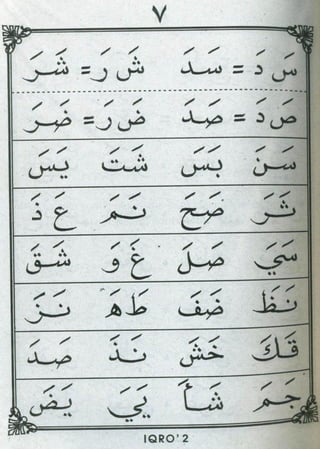 ٧
سَ دَ = سَدَ شَ رَ = شَرَ
صَ دَ = صَدَ ضَ رَ = ضَرَ
سَنَ بَسَ شَتَ يَسَ
ثَرَ ضَحَ نَمَ عَ ذَ
سَيَ صَلَ غَ وَ شَقَ
نَظَ ضَفَ طَهَ نَزَ
قَكَ خَشَ نَذَ صَدَ
جَمَ شَأَ يَيَ يَضَ
IQRO' 2